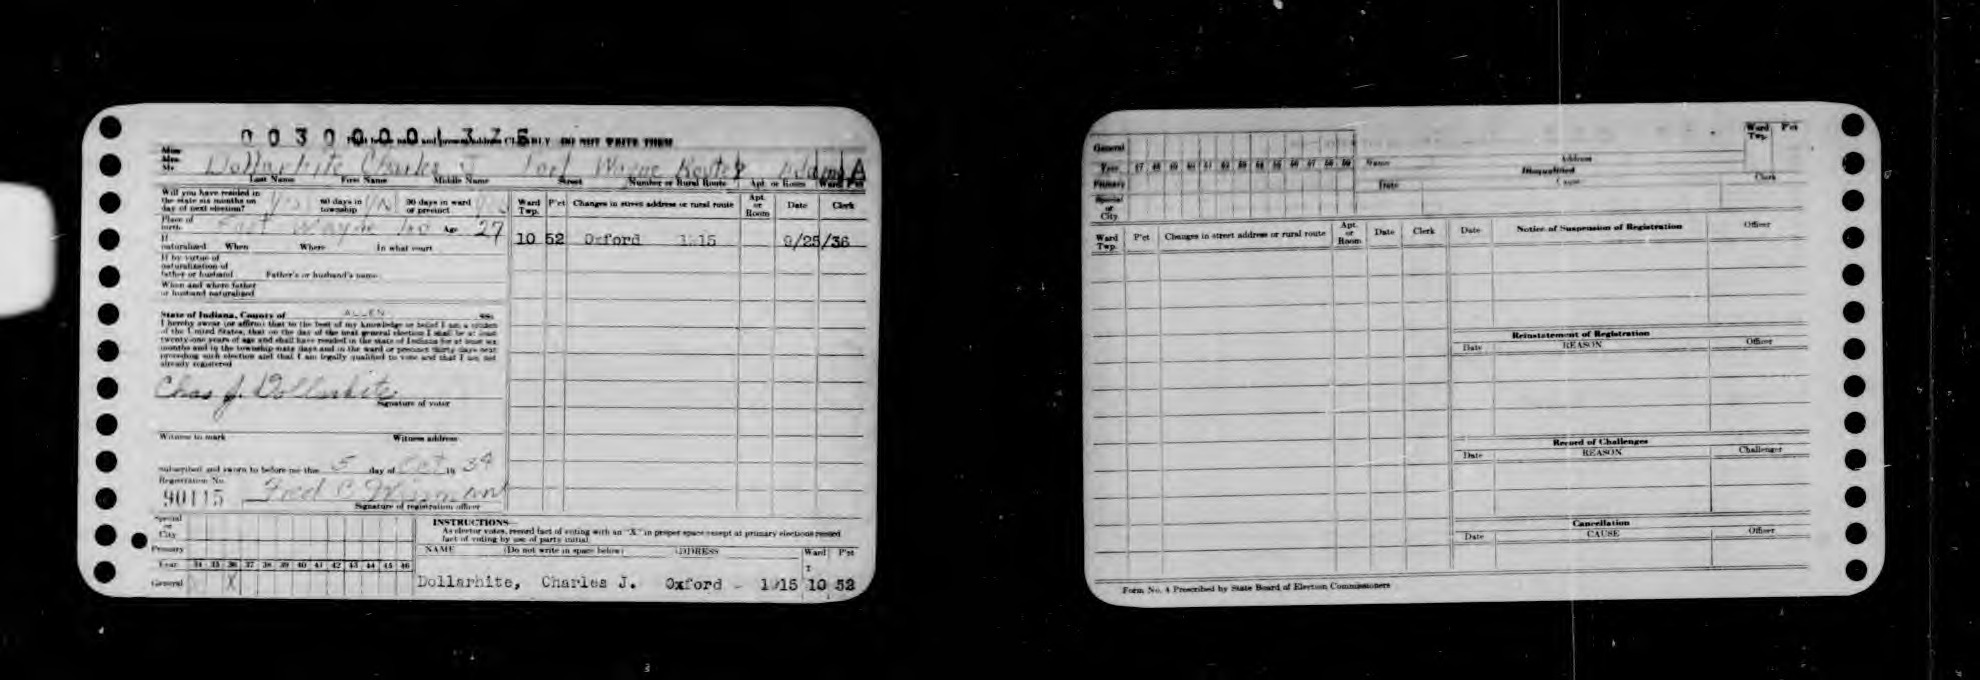 00300001376
Print below name and present address CLEARLY DO NOT WRITE THEM
Miss
Mrs.
Mr. Dollarhite Charles J Fort Wayne Route
Last Name First Name Middle Name Street Number or Rural Route Apt. or Room Ward Pct
Will you have resided in
the state six months on
day of next election? Yes 60 days in township Yes 30 days in ward or precinct
Place of birth Fort Wayne Ind Age 27
If naturalized When Where In what court
If by virtue of
naturalization of
father or husband Father's or husband's name
When and where father
or husband naturalized
State of Indiana, County of ALLEN ss:
I hereby swear (or affirm) that to the best of my knowledge or belief I am a citizen
of the United States, that on the day of the next general election I shall be at least
twenty-one years of age and shall have resided in the state of Indiana for at least six
months and in the township sixty days and in the ward or precinct thirty days next
preceding such election and that I am legally qualified to vote and that I am not
already registered
Chas J. Dollarhite
Signature of voter
Witness to mark Witness address
Subscribed and sworn to before me this 5 day of Oct 19 34
Registration No.
90115 Fred C
Signature of registration officer
Ward Twp. P'ct Changes in street address or rural route Apt. or Room Date Clerk
10 52 Oxford 1915 9/25/36
Special or City
Primary
Year 34 35 36 37 38 39 40 41 42 43 44 45 46
General X
INSTRUCTIONS—
As elector votes, record fact of voting with an "X" in proper space except at primary elections record
fact of voting by use of party initial.
NAME (Do not write in space below) ADDRESS Ward P'ct
T
Dollarhite, Charles J. Oxford - 1915 10 52
General
Year 47 48 49 50 51 52 53 54 55 56 57 58 59 Name Address Ward Twp. P'ct
Primary Disqualified
Special or City Date Cause Clerk
Ward Twp. P'ct Changes in street address or rural route Apt. or Room Date Clerk
Date Notice of Suspension of Registration Officer
Reinstatement of Registration
Date REASON Officer
Record of Challenges
Date REASON Challenger
Cancellation
Date CAUSE Officer
Form No. 4 Prescribed by State Board of Election Commissioners
3